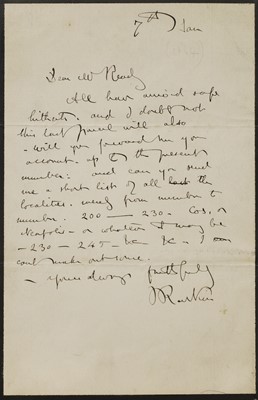 7th Jan
Dear Mr Ready
All have arrived safe
hitherto. and I doubt not
this last parcel will also
- will you forward me your
account. up to the present
number. and can you send
me a short list of all the
localities. merely from number to
number. 200 — 230 -
- or whatever it may be
- 230 — 245 - I
cant make out some.
- yours always faithfully
J Ruskin